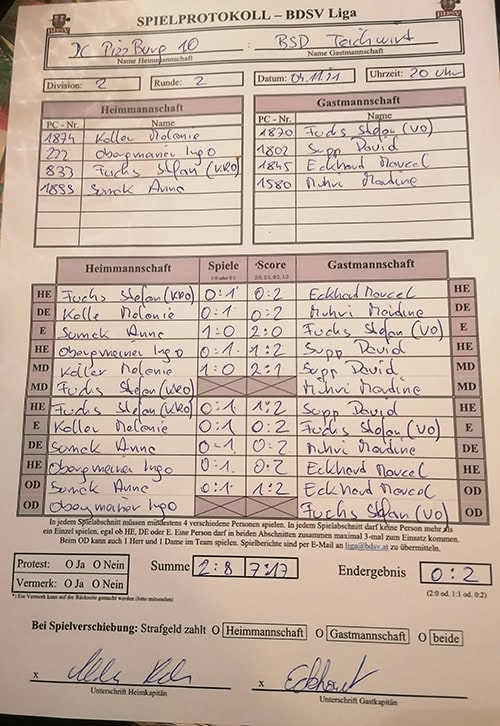 SPIELPROTOKOLL – BDSV Liga
DC PissBurg 10 : BSD Teichwirt
Name Heimmannschaft Name Gastmannschaft
Division: 2 Runde: 2 Datum: 04.11.21 Uhrzeit: 20 Uhr
Heimmannschaft Gastmannschaft
PC - Nr. Name PC - Nr. Name
1874 Koller Melanie 1870 Fuchs Stefan (VO)
222 Obergmeiner Ingo 1802 Supp David
833 Fuchs Stefan (KRO) 1845 Eckhard Marcel
1899 Sumck Anna 1580 Muhri Nardine
Heimmannschaft Spiele Score Gastmannschaft
1:0 oder 0:1 2:0, 2:1, 0:2, 1:2
HE Fuchs Stefan (KRO) 0:1 0:2 Eckhard Marcel HE
DE Kolle Melanie 0:1 0:2 Muhri Nardine DE
E Sumck Anna 1:0 2:0 Fuchs Stefan (VO) E
HE Obergmeiner Ingo 0:1 1:2 Supp David HE
MD Koller Melanie 1:0 2:1 Supp David MD
MD Fuchs Stefan (KRO) Muhri Nardine MD
HE Fuchs Stefan (KRO) 0:1 1:2 Supp David HE
E Koller Melanie 0:1 0:2 Fuchs Stefan (VO) E
DE Sumck Anna 0-1 0:2 Muhri Nardine DE
HE Obergmeiner Ingo 0:1 0:2 Eckhard Marcel HE
OD Sumck Anna 0:1 1:2 Eckhard Marcel OD
OD Obergmeiner Ingo Fuchs Stefan (VO) OD
In jedem Spielabschnitt müssen mindestens 4 verschiedene Personen spielen. In jedem Spielabschnitt darf keine Person mehr als
ein Einzel spielen, egal ob HE, DE oder E. Eine Person darf in beiden Abschnitten zusammen maximal 3-mal zum Einsatz kommen.
Beim OD kann auch 1 Herr und 1 Dame im Team spielen. Spielberichte sind per E-Mail an liga@bdsv.at zu übermitteln.
Protest: O Ja O Nein Summe 2:8 7:17 Endergebnis 0:2
Vermerk: O Ja O Nein (2:0 od. 1:1 od. 0:2)
*) Ein Vermerk kann auf der Rückseite gemacht werden (bitte mitsenden)
Bei Spielverschiebung: Strafgeld zahlt O Heimmannschaft O Gastmannschaft O beide
x x Eckhard
Unterschrift Heimkapitän Unterschrift Gastkapitän